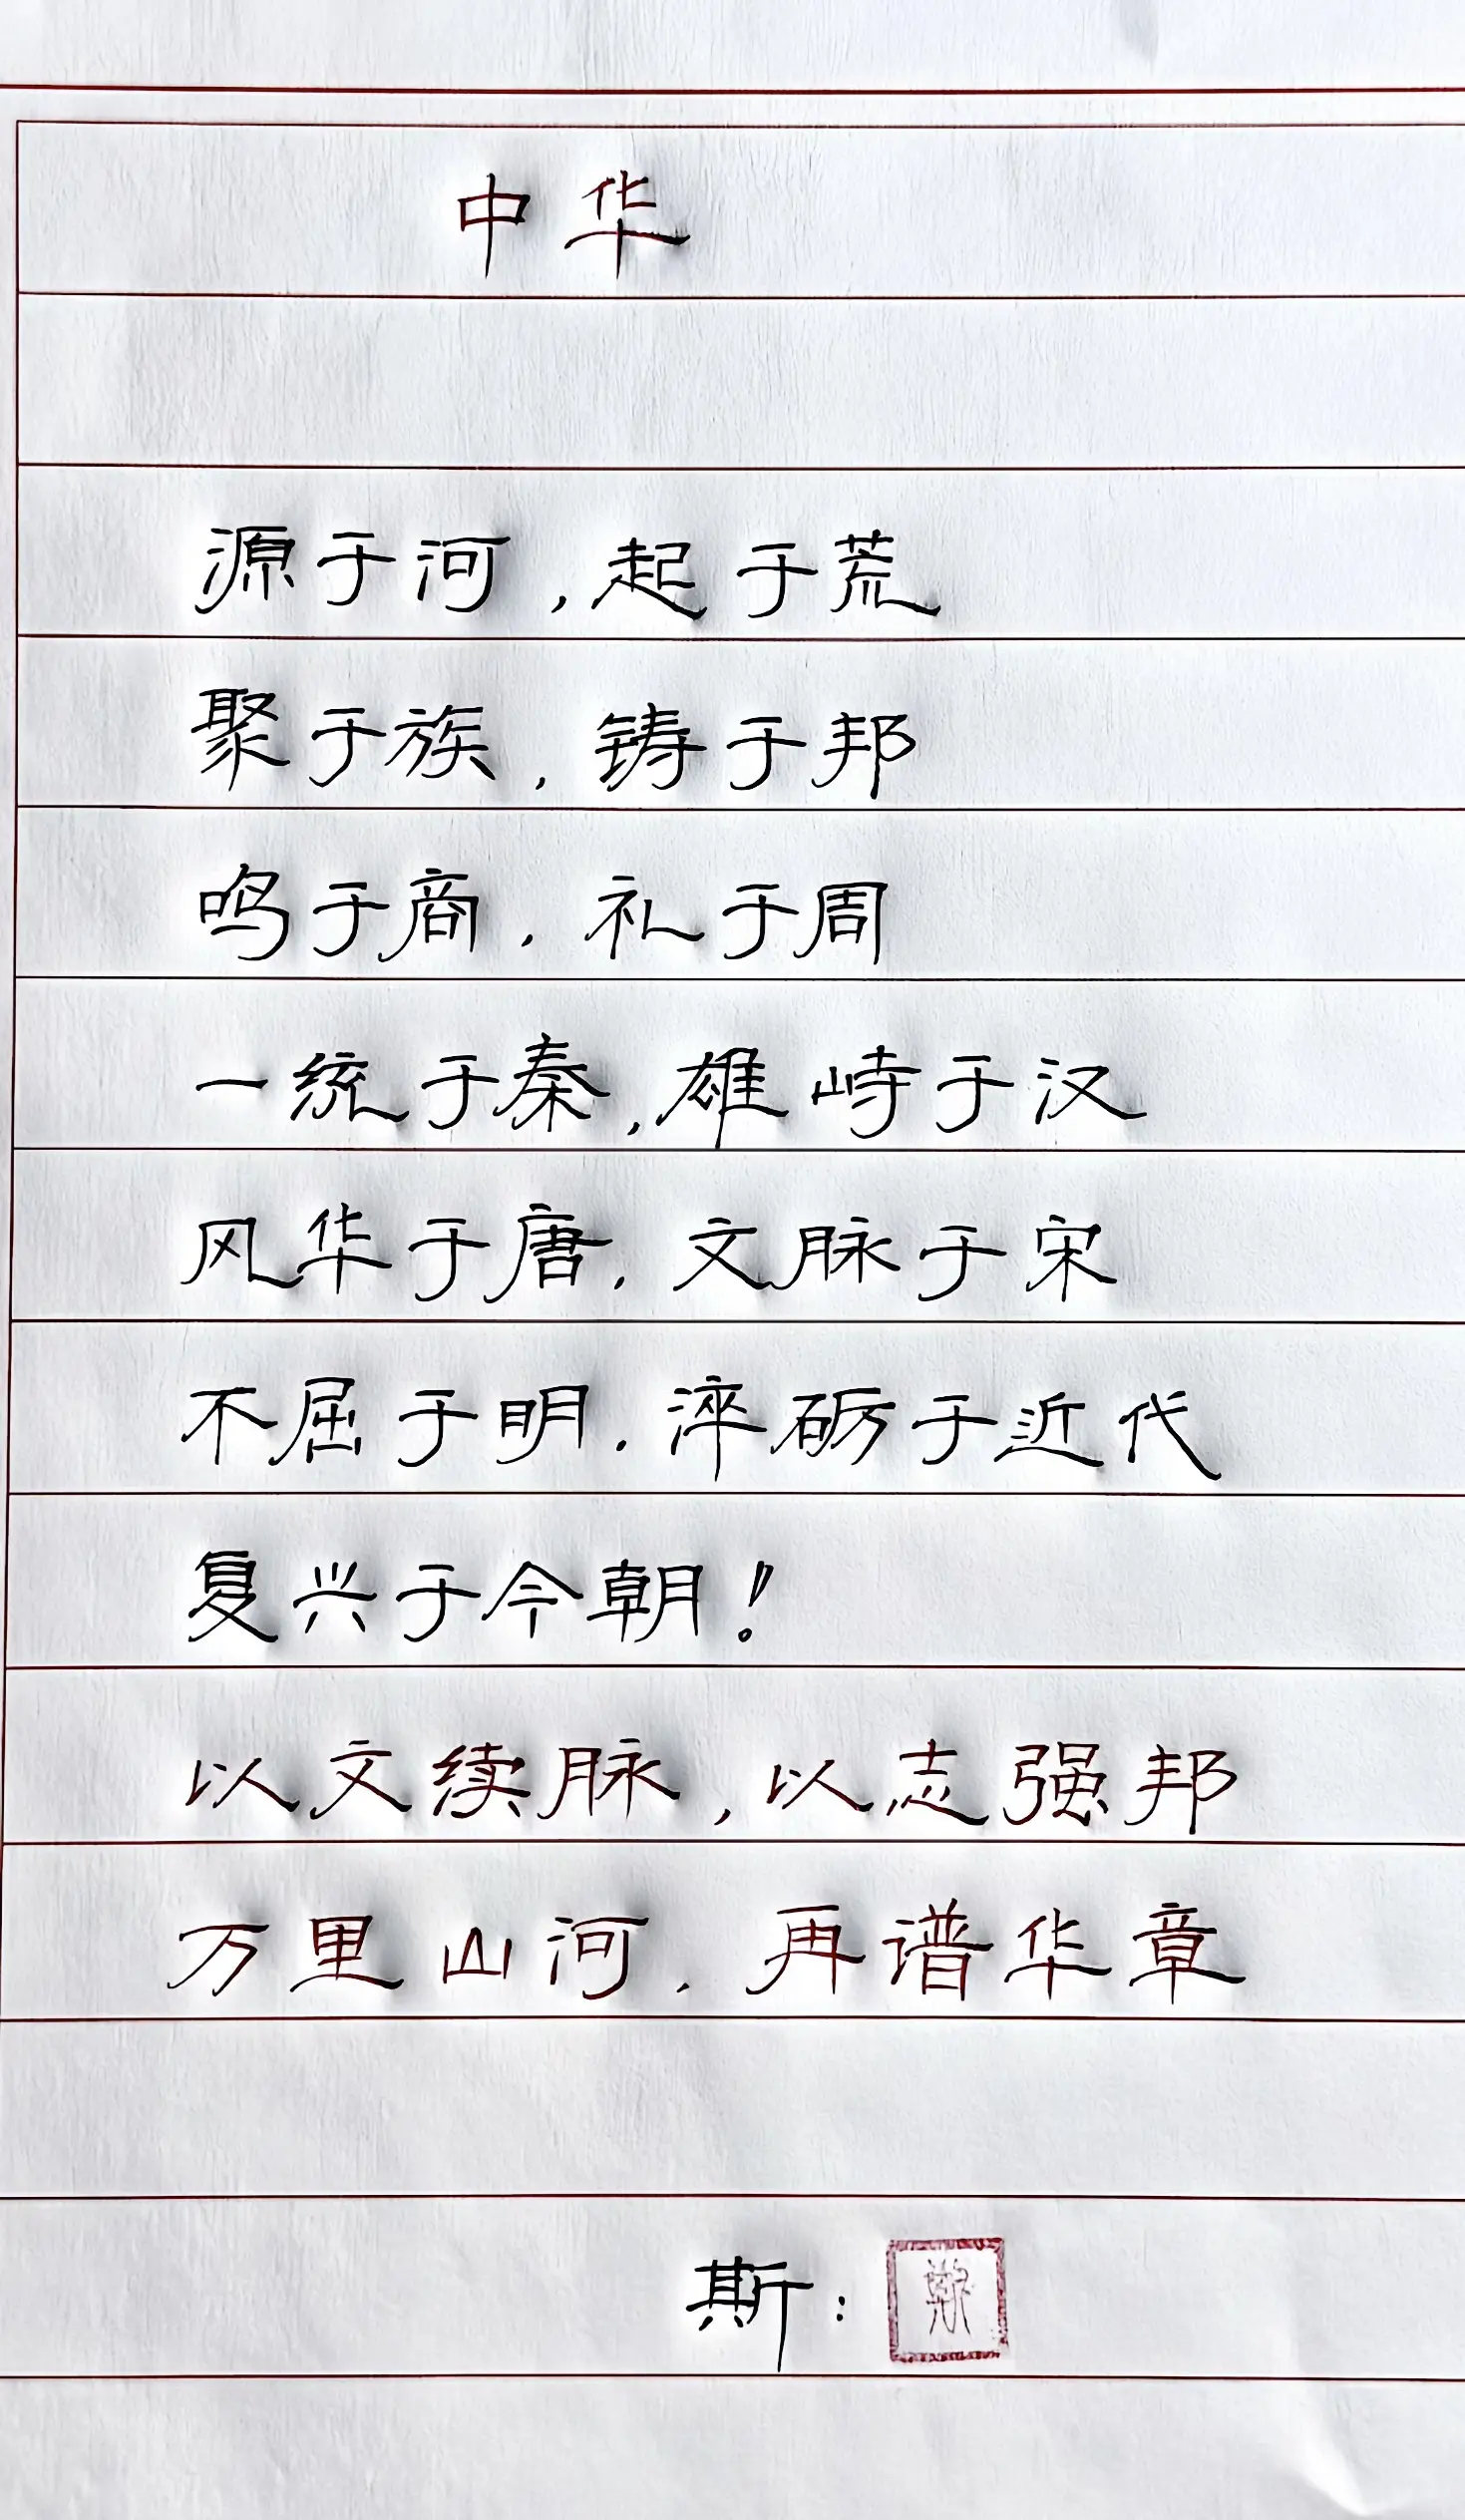 中华
源于河，起于荒
聚于族，铸于邦
鸣于商，礼于周
一统于秦，雄峙于汉
风华于唐，文脉于宋
不屈于明．淬砺于近代
复兴于今朝！
以文续脉，以志强邦
万里山河，再谱华章
斯：